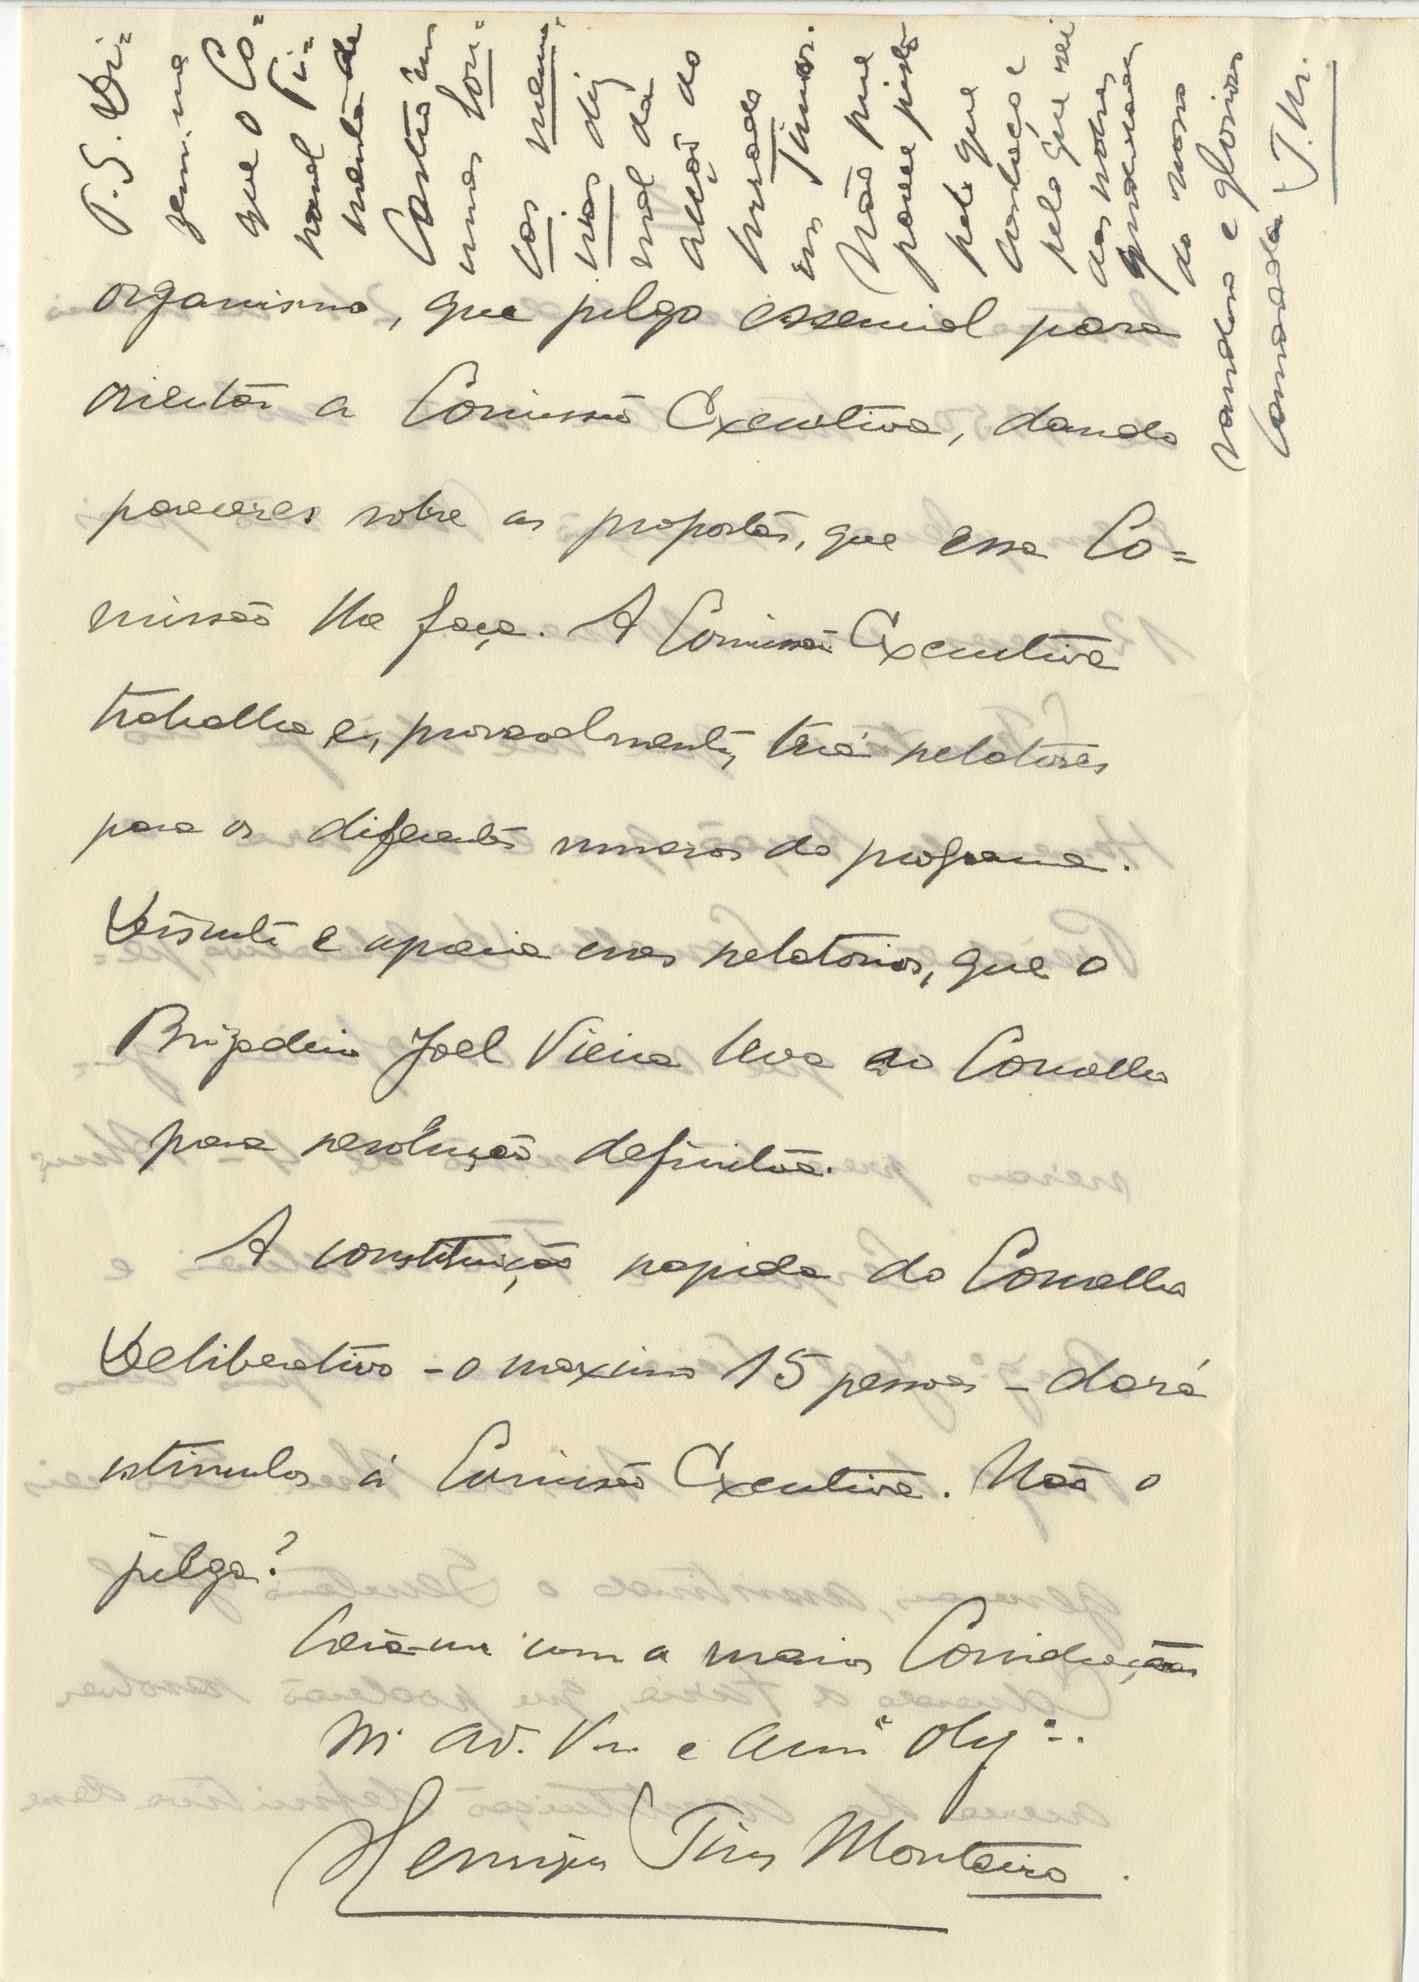 organismo, que julgo essencial para
orientar a Comissão Executiva, dando
pareceres sobre as propostas, que essa Co=
missão lhe faça. A Comissão Executiva
trabalha e, provavelmente, terá relatores
para os diferentes numeros do programa.
Discute e apoia esses relatorios, que o
Brigadeiro Joel Vieira leva ao Conselho
para resolução definitiva.
A constituição rapida do Conselho
Deliberativo - o maximo 15 pessoas - dará
estimulos á Comissão Executiva. Não o
julga?
com a maior Consideração
Henrique Pires Monteiro.
P.S. Di=
zem-me
que o Co=
ronel Pi=
menta de
Castro em
umas Lon=
cas memo=
rias diz
mal da
acção do
em Timor.
Não me
parece justo
pelo que
conheço e
pelo que sei
dos nobres
do nosso
e glorioso
Camarada P.M.